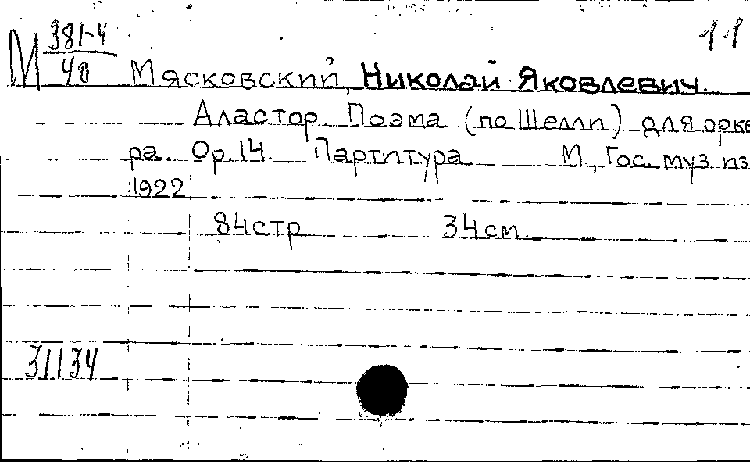 М 381-4/40
11
Мясковский, Николай Яковлевич.
Аластор. Поэма (по Шелли) для орке
ра. Ор. 14. Партитура. М., Гос. муз. из
1922
84 стр 34 см.
31134